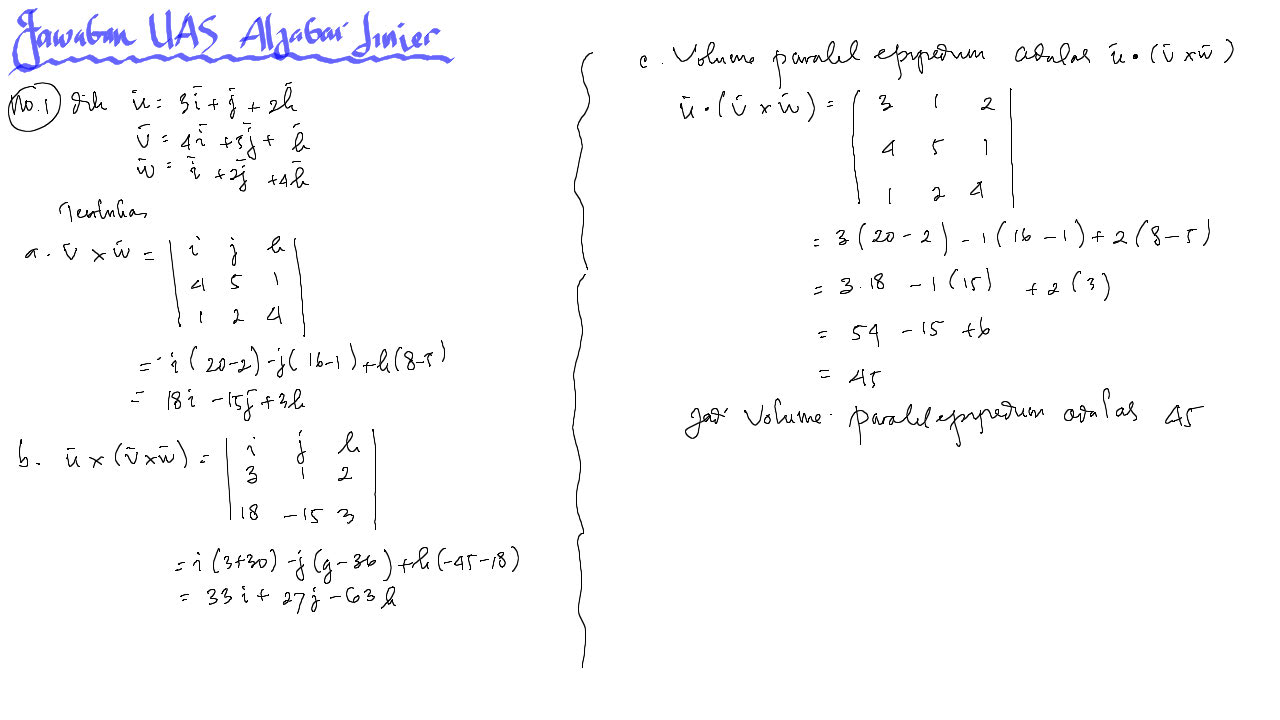 Jawaban UAS Aljabar Linier
No.1 Dik ū = 3ī + j̄ + 2k̄
v̄ = 4ī + 3j̄ + k̄
w̄ = ī + 2j̄ + 4k̄
Tentukan
a. v̄ × w̄ = | i j k |
| 4 5 1 |
| 1 2 4 |
= i(20-2) - j(16-1) + k(8-5)
= 18i - 15j + 3k
b. ū × (v̄ × w̄) = | i j k |
| 3 1 2 |
| 18 -15 3 |
= i(3+30) - j(9-36) + k(-45-18)
= 33i + 27j - 63k
c. Volume paralel epipedum adalah ū • (v̄ × w̄)
ū • (v̄ × w̄) = | 3 1 2 |
| 4 5 1 |
| 1 2 4 |
= 3(20-2) - 1(16-1) + 2(8-5)
= 3.18 - 1(15) + 2(3)
= 54 - 15 + 6
= 45
Jadi Volume paralel epipedum adalah 45